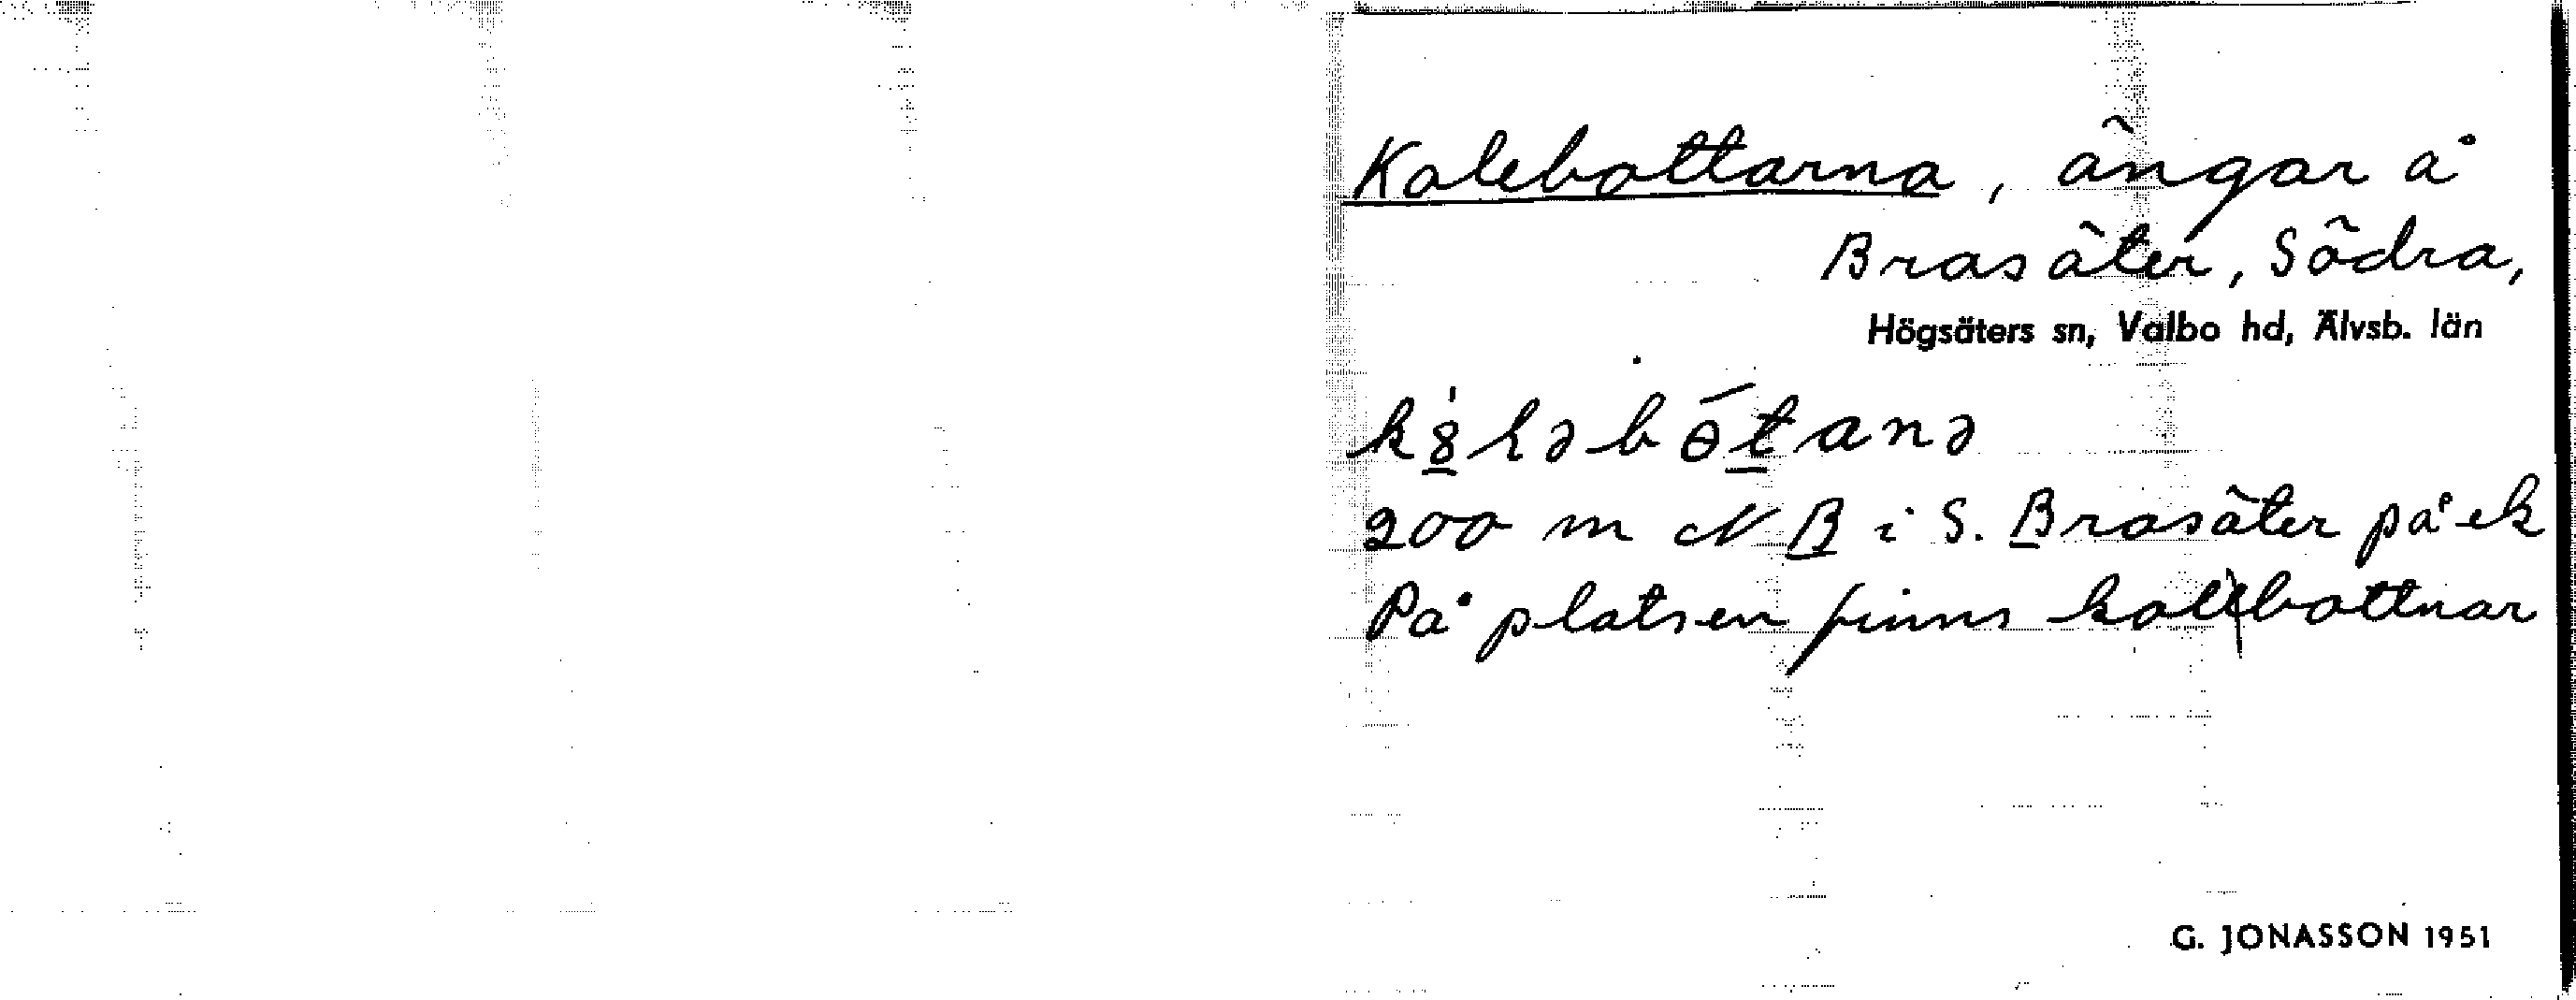 Kolebottarna, ängar å
Brasäter, Södra,
Högsäters sn, Valbo hd, Älvsb. län
200 m N B i S. Brasäter på ek
På platsen finns kolbottnar
G. JONASSON 1951